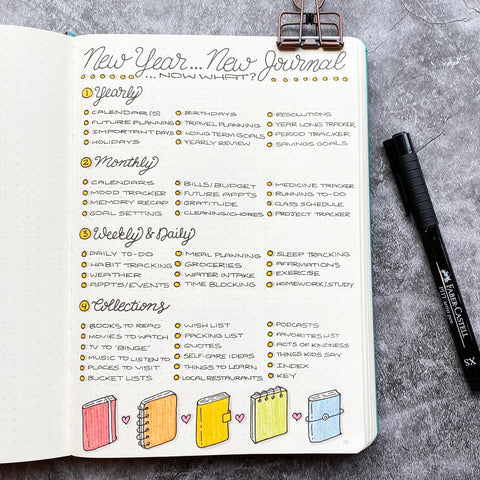 New Year... New Journal
...NOW WHAT?
1 Yearly
CALENDAR(S)
FUTURE PLANNING
IMPORTANT DAYS
HOLIDAYS
BIRTHDAYS
TRAVEL PLANNING
LONG TERM GOALS
YEARLY REVIEW
RESOLUTIONS
YEAR LONG TRACKER
PERIOD TRACKER
SAVINGS GOALS
2 Monthly
CALENDARS
MOOD TRACKER
MEMORY RECAP
GOAL SETTING
BILLS/BUDGET
FUTURE APPTS
GRATITUDE
CLEANING/CHORES
MEDICINE TRACKER
RUNNING TO-DO
CLASS SCHEDULE
PROJECT TRACKER
3 Weekly & Daily
DAILY TO-DO
HABIT TRACKING
WEATHER
APPTS/EVENTS
MEAL PLANNING
GROCERIES
WATER INTAKE
TIME BLOCKING
SLEEP TRACKING
AFFIRMATIONS
EXERCISE
HOMEWORK/STUDY
4 Collections
BOOKS TO READ
MOVIES TO WATCH
TV TO "BINGE"
MUSIC TO LISTEN TO
PLACES TO VISIT
BUCKET LISTS
WISH LIST
PACKING LIST
QUOTES
SELF-CARE IDEAS
THINGS TO LEARN
LOCAL RESTAURANTS
PODCASTS
FAVORITES LIST
ACTS OF KINDNESS
THINGS KIDS SAY
INDEX
KEY
FABER-CASTELL
PITT
XS